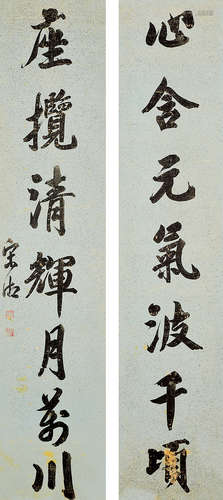 心含元氣波千頃
座攬清輝月萬川
宋湘